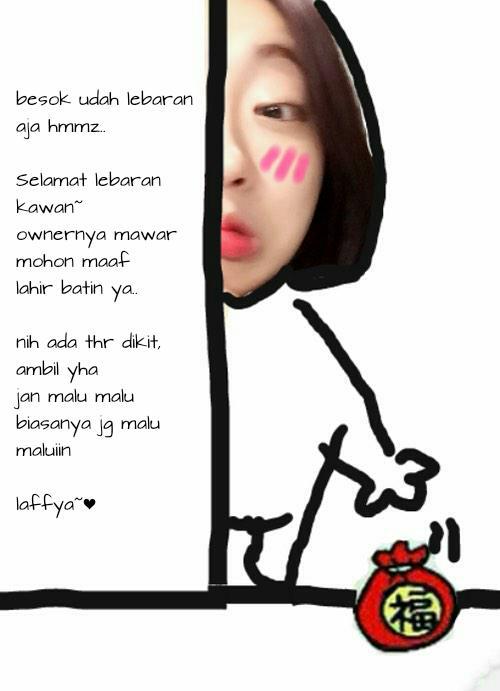 besok udah lebaran
aja hmmz..
Selamat lebaran
kawan~
ownernya mawar
mohon maaf
lahir batin ya..
nih ada thr dikit,
ambil yha
jan malu malu
biasanya jg malu
maluiin
laffya~♥
福